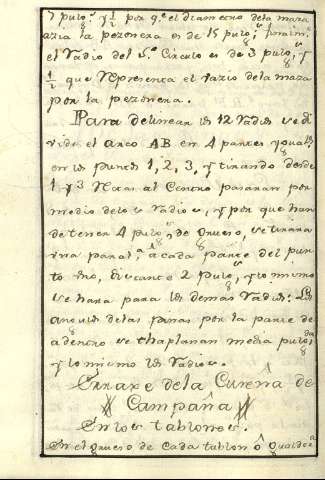 7 pulg.s y 1/2 por q.e el diametro dela maza
azia la pezonera es de 15 pulg.s;
el Radio del 5.o Circulo es de 3 pulg.s y
1/2 que representa el razio dela maza
por la pezonera.
Para delinear los 12 Radios se di
vide el arco AB en 4 partes yguales
en los puntos 1, 2, 3, y tirando desde
1 y 3 Rectas al Centro pasaran por
medio delos Radios, y por que han
detener 4 pulg.s de grueso, se tirara
vna paral.a a cada parte del pun
to dho, distante 2 pulg.s, y lo mismo
se hara para los demas Radios: Los
angulos delas pinas por la parte de
adentro se chaplanan media pulgda
y lo mismo los Radios.
Erraxe dela Cureña de
Campaña
Enlos tablones.
En el grueso de cada tablon ô Gualdera